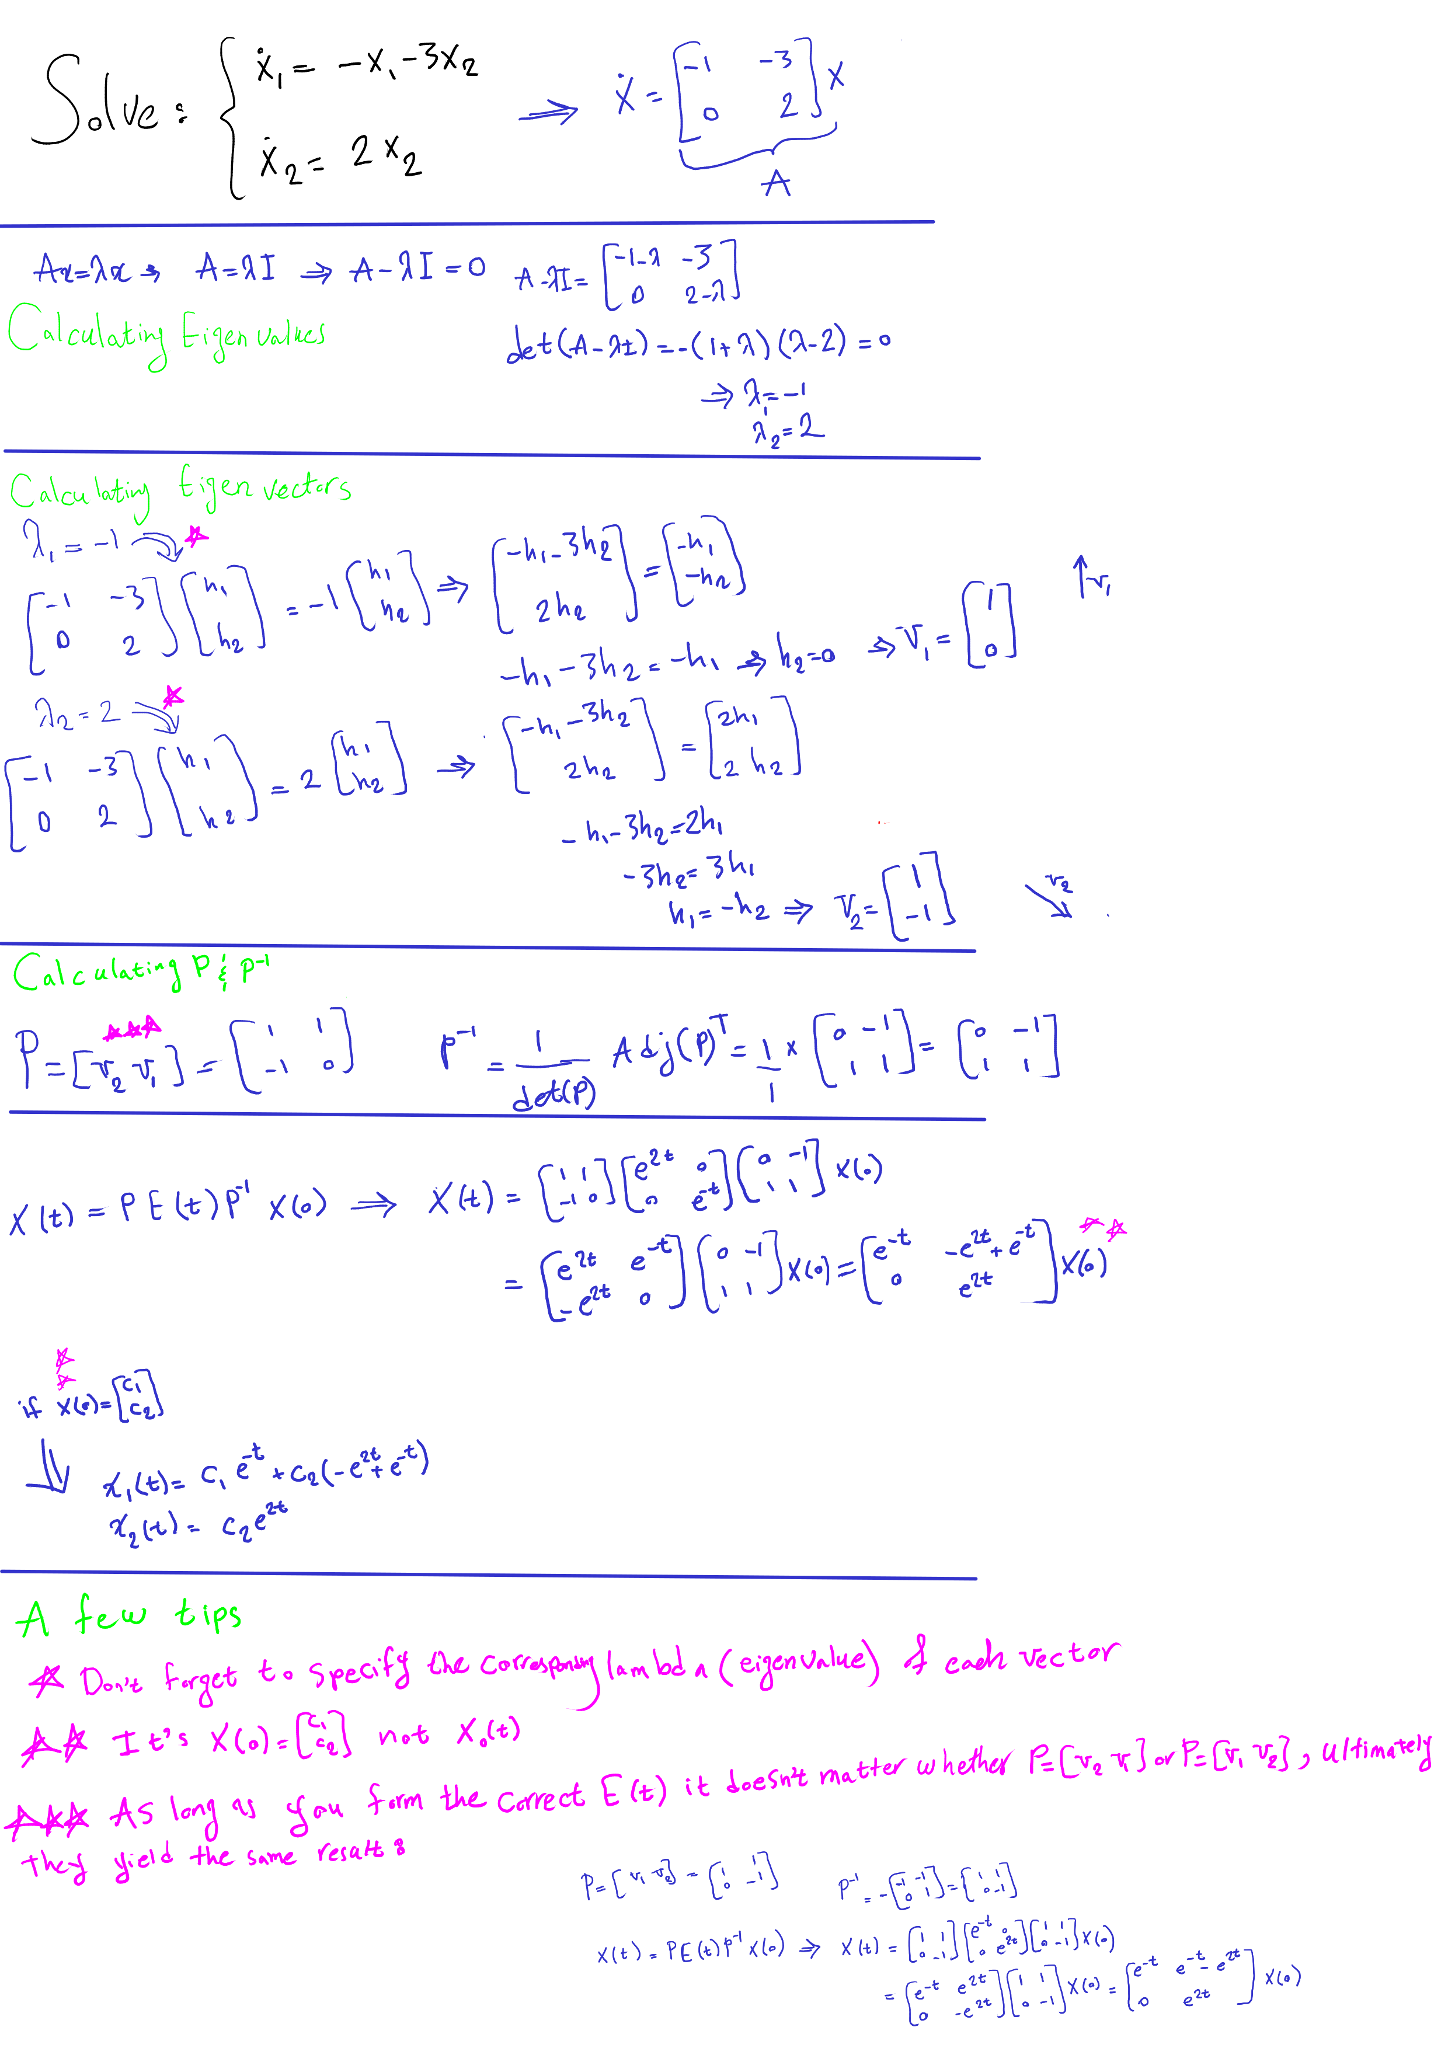 Solve: { ẋ₁ = -x₁-3x₂
ẋ₂ = 2x₂
⇒ Ẋ = [-1 -3; 0 2] X
A
Ax=λx ⇒ A=λI ⇒ A-λI=0 A-λI= [-1-λ -3; 0 2-λ]
Calculating Eigen values
det(A-λI) = -(1+λ)(λ-2) = 0
⇒ λ₁=-1
λ₂=2
Calculating Eigen vectors
λ₁=-1 ☆
[-1 -3; 0 2] [h₁; h₂] = -1 [h₁; h₂] ⇒ [-h₁-3h₂; 2h₂] = [-h₁; -h₂]
-h₁-3h₂=-h₁ ⇒ h₂=0 ⇒ V₁= [1; 0] ↑v₁
λ₂=2 ☆
[-1 -3; 0 2] [h₁; h₂] = 2 [h₁; h₂] ⇒ [-h₁-3h₂; 2h₂] = [2h₁; 2h₂]
-h₁-3h₂=2h₁
-3h₂=3h₁
h₁=-h₂ ⇒ V₂= [1; -1] ↘v₂
Calculating P & P⁻¹
☆☆☆
P=[v₂ v₁] = [1 1; -1 0] P⁻¹ = 1/det(P) Adj(P)ᵀ = 1/1 × [0 -1; 1 1] = [0 -1; 1 1]
X(t) = P E(t) P⁻¹ X(0) ⇒ X(t) = [1 1; -1 0] [e²ᵗ 0; 0 e⁻ᵗ] [0 -1; 1 1] X(0)
= [e²ᵗ e⁻ᵗ; -e²ᵗ 0] [0 -1; 1 1] X(0) = [e⁻ᵗ -e²ᵗ+e⁻ᵗ; 0 e²ᵗ] X(0) ☆☆
☆☆
if X(0)= [c₁; c₂]
⇓ x₁(t)= c₁ e⁻ᵗ + c₂(-e²ᵗ+e⁻ᵗ)
x₂(t)= c₂e²ᵗ
A few tips
☆ Don't forget to specify the corresponding lambda (eigenvalue) of each vector
☆☆ It's X(0)= [c₁; c₂] not X₀(t)
☆☆☆ As long as you form the correct E(t) it doesn't matter whether P=[v₂ v₁] or P=[v₁ v₂], ultimately
they yield the same result :
P=[v₁ v₂] = [1 1; 0 -1] P⁻¹ = -[-1 -1; 0 1] = [1 1; 0 -1]
X(t) = PE(t)P⁻¹ X(0) ⇒ X(t) = [1 1; 0 -1] [e⁻ᵗ 0; 0 e²ᵗ] [1 1; 0 -1] X(0)
= [e⁻ᵗ e²ᵗ; 0 -e²ᵗ] [1 1; 0 -1] X(0) = [e⁻ᵗ e⁻ᵗ-e²ᵗ; 0 e²ᵗ] X(0)